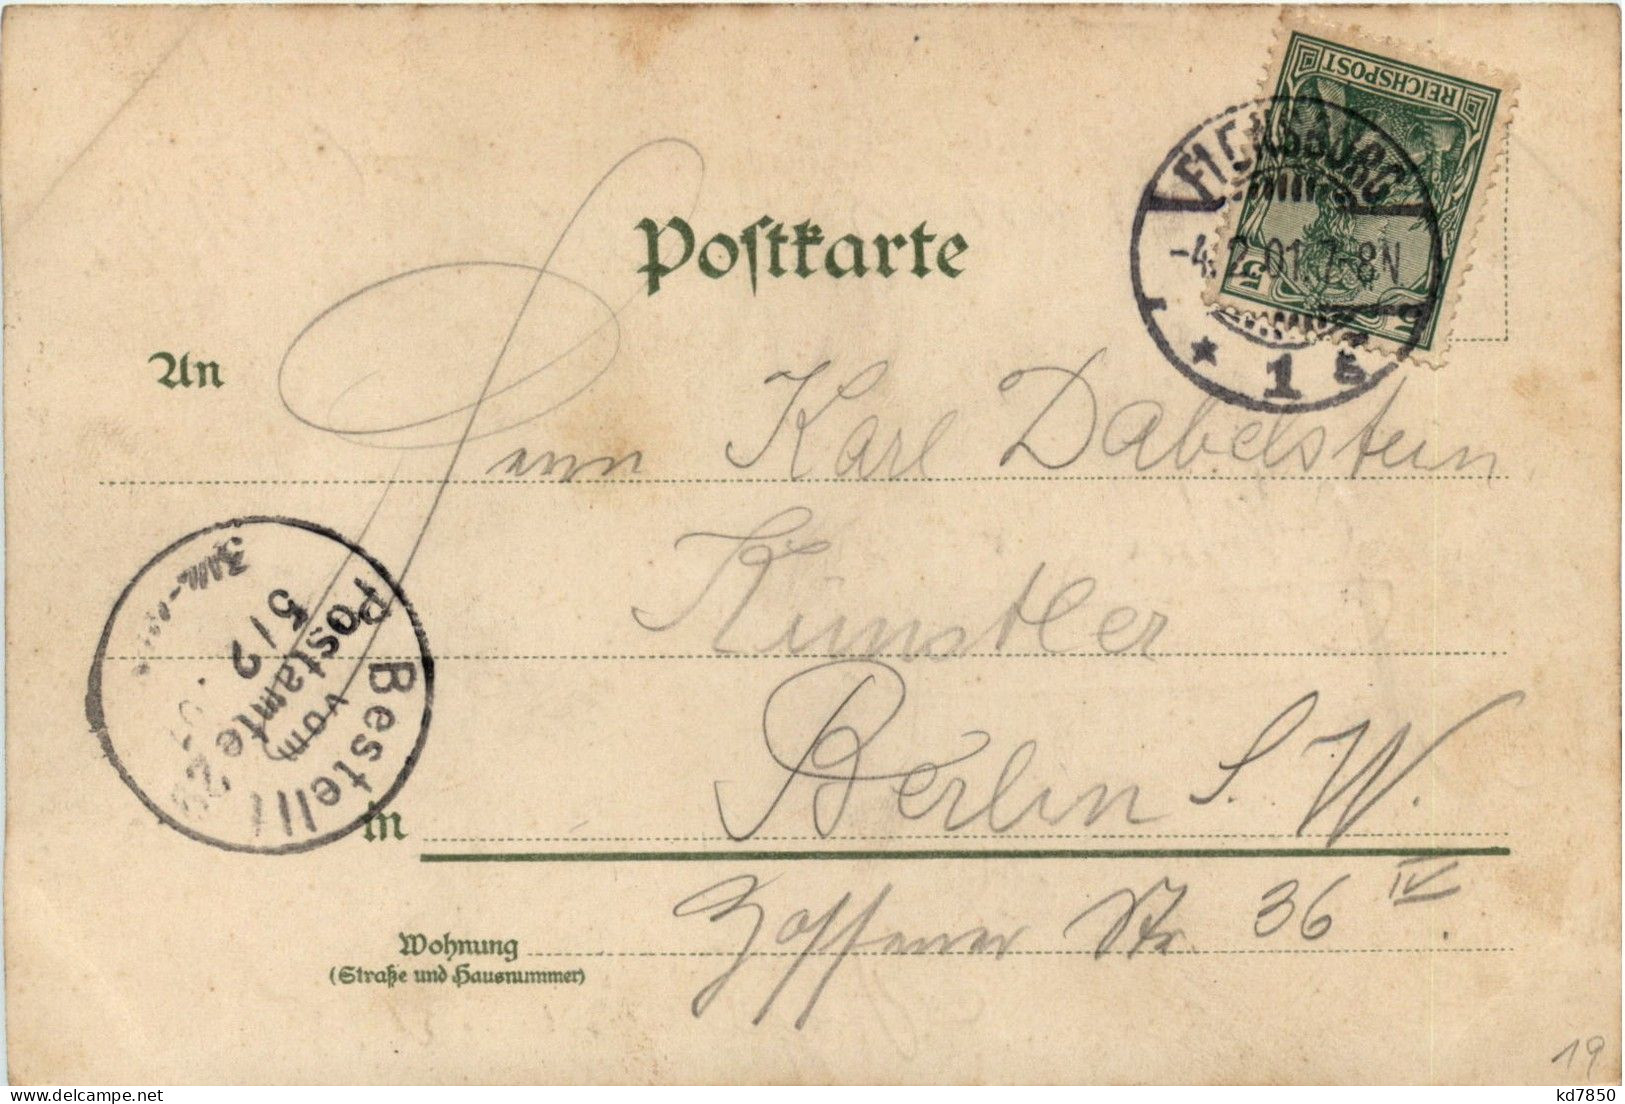 REICHSPOST
5
FLENSBURG
-4.2.01.7-8N
* 1 b
Postkarte
An
Herrn Karl Dabelstein
Künstler
Bestellt
vom
Postamte 29
5/2
in Berlin S.W.
Wohnung Zossener Str. 36 IV.
(Straße und Hausnummer)
19
delcampe.net
kd7850